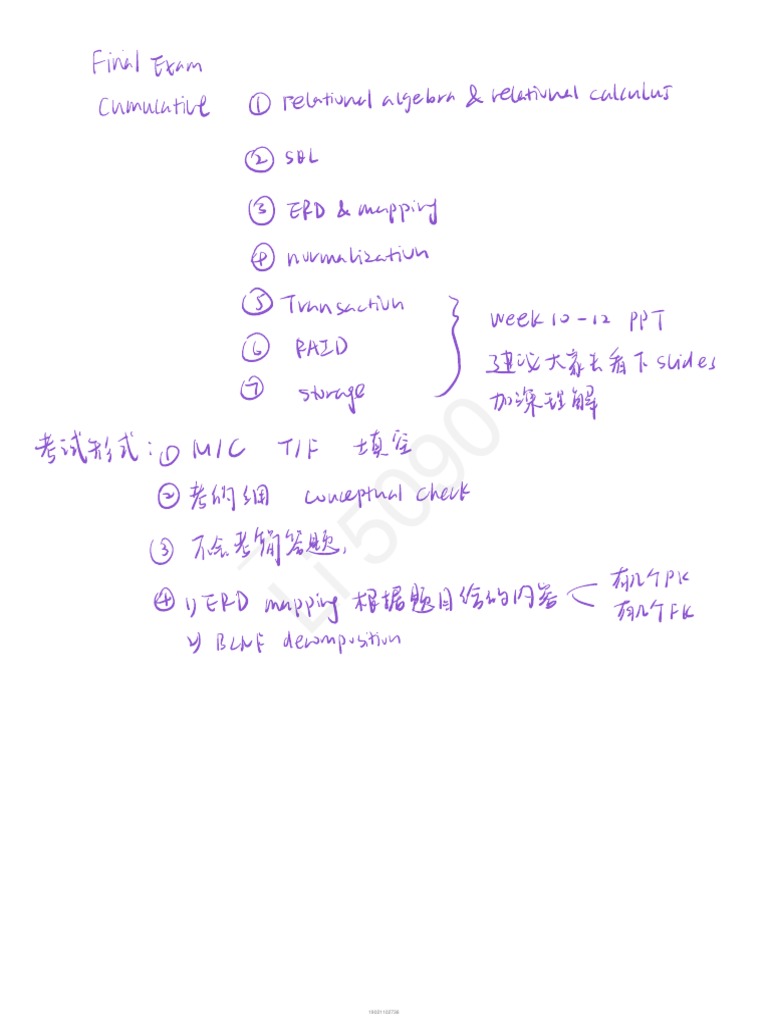 Final Exam
Cumulative ① relational algebra & relational calculus
② SQL
③ ERD & mapping
④ normalization
⑤ Transaction
week 10-12 PPT
⑥ RAID
建议大家去看下 slides
⑦ storage
加深理解
考试形式: ① M/C T/F 填空
② 考的细 conceptual check
③ 不会考简答题,
④ 1) ERD mapping 根据题目给的内容
有几个PK
有几个FK
2) BCNF decomposition
Li 5090